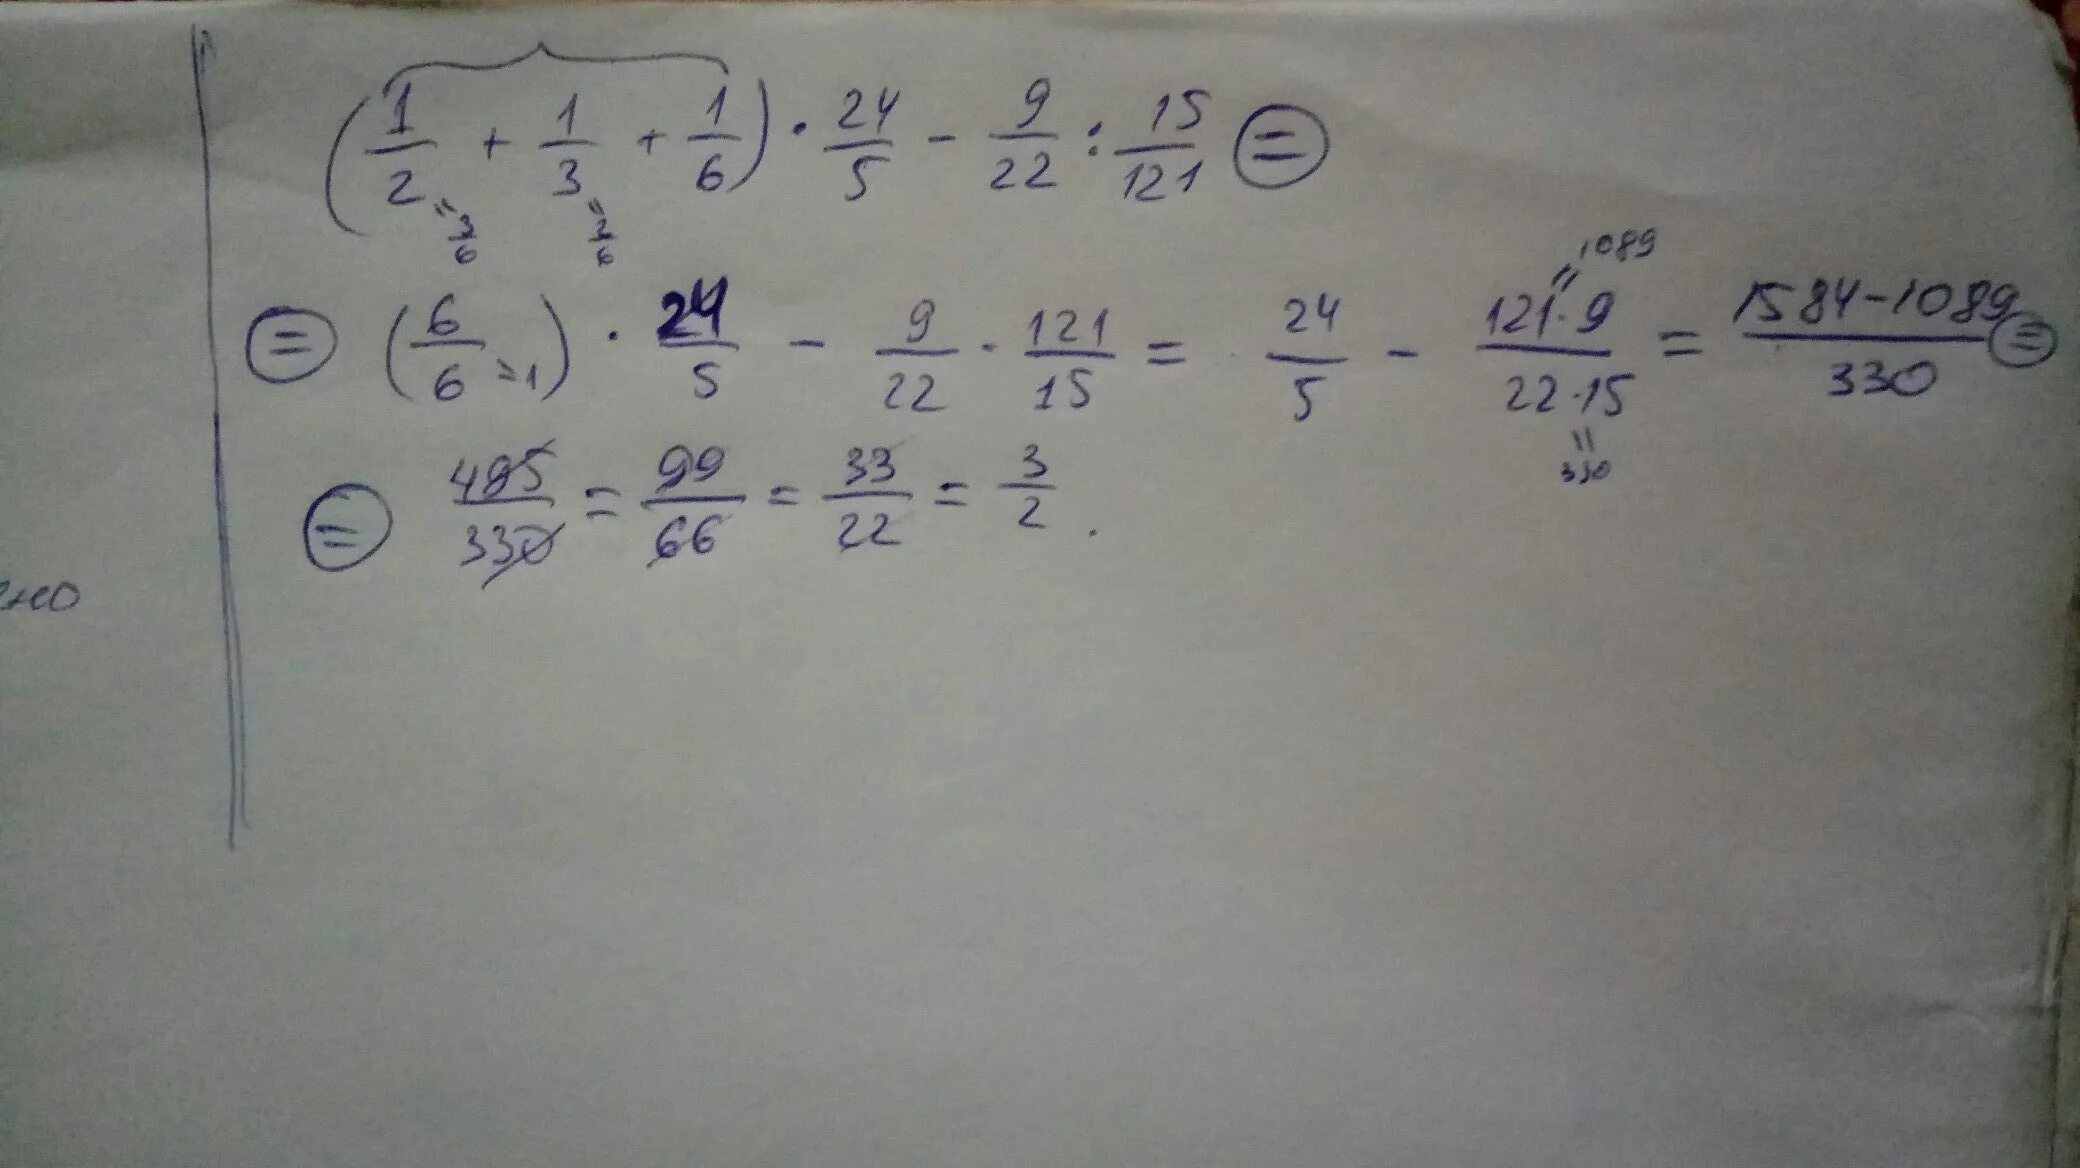 (1/2 + 1/3 + 1/6) · 24/5 − 9/22 : 15/121 =
= 3/6 = 2/6
= (6/6 = 1) · 24/5 − 9/22 · 121/15 = 24/5 − 121·9/22·15 = 1584−1089/330 =
= 1089
= 330
= 495/330 = 99/66 = 33/22 = 3/2 .
но